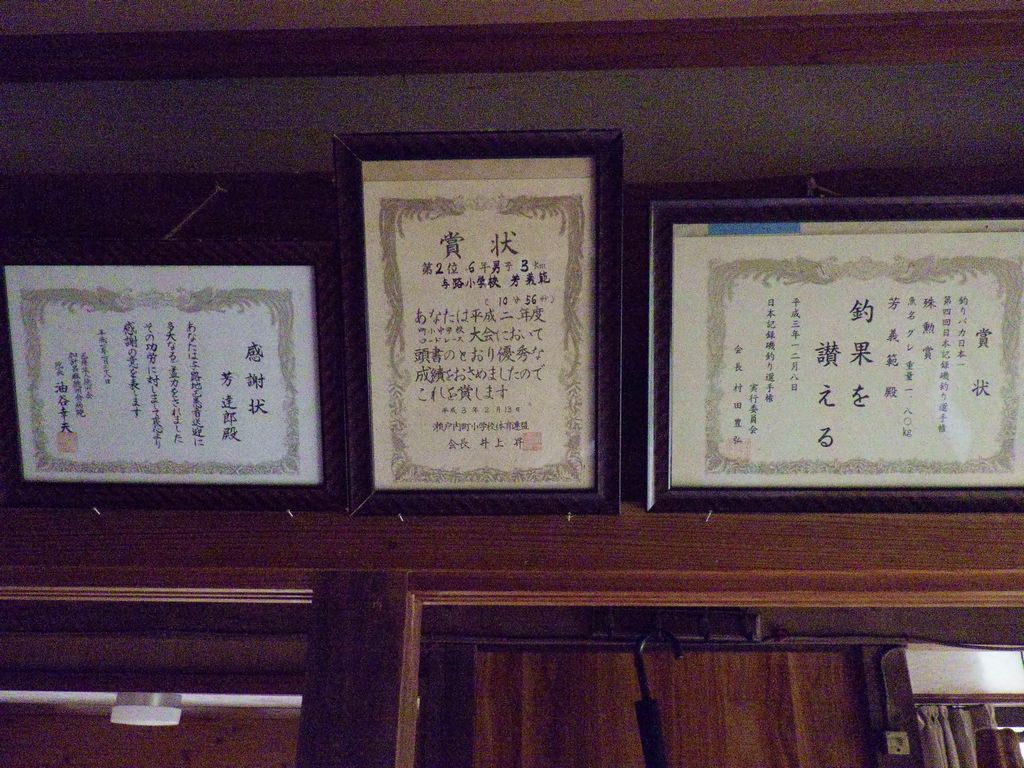 感謝状
芳達郎殿
あなたは与路地区患者送迎に
多大なるご盡力をされました
その功労に対しまして衷心より
感謝の意を表します
油谷幸夫
賞状
第2位 6年男子 3km
与路小学校 芳義範
(10分56秒)
あなたは平成二年度
町小中学校
ロードレース 大会において
頭書のとおり優秀な
成績をおさめましたので
これを賞します
平成3年2月13日
瀬戸内町小学校体育連盟
会長 井上 昇
賞状
釣りバカ日本一
第四回日本記録磯釣り選手権
殊勲賞
魚名グレ重量一・八〇kg
芳義範殿
釣果を
讃える
平成三年一二月八日
日本記録磯釣り選手権
実行委員会
会長 村田豊弘